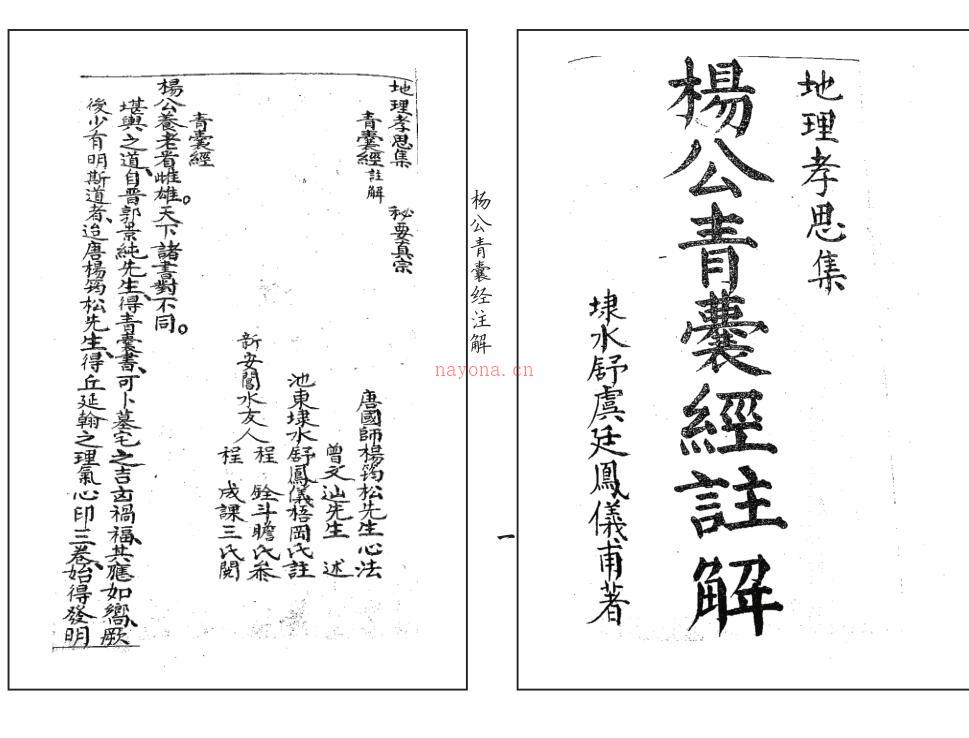 地理孝思集
楊公青囊經註解
埭水舒虞廷鳳儀甫著
杨公青囊经注解
一
nayona.cn
地理孝思集　秘要真宗
青囊經註解
唐國師楊筠松先生心法
曾文辿先生　述
池東埭水舒鳳儀梧岡氏註
新安閶水友人程　銓斗瞻氏參
程　成課三氏閱
青囊經
楊公養老看雌雄。天下諸書對不同。
堪輿之道、自晋郭景純先生、得青囊書、可卜墓宅之吉凶禍福、其應如嚮、厥
後少有明斯道者、迨唐楊筠松先生、得丘延翰之理氣心印三卷、始得發明